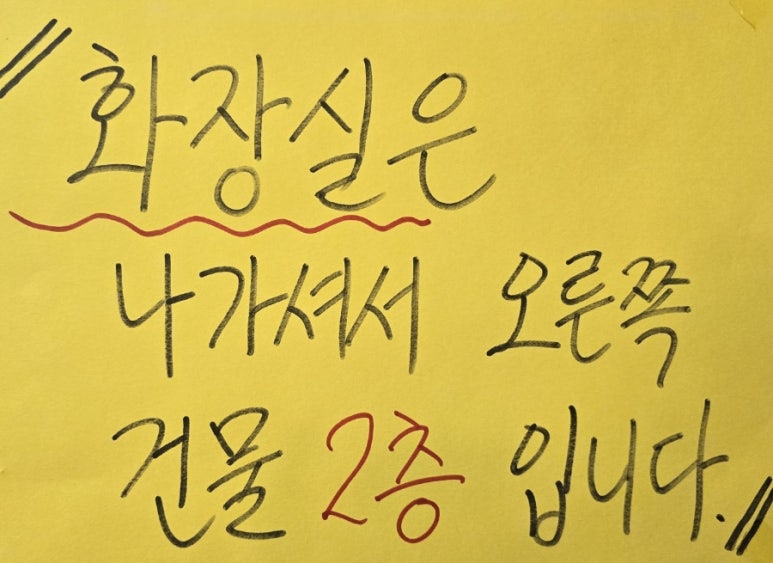 〃화장실은
나가셔서 오른쪽
건물 2층 입니다.〃